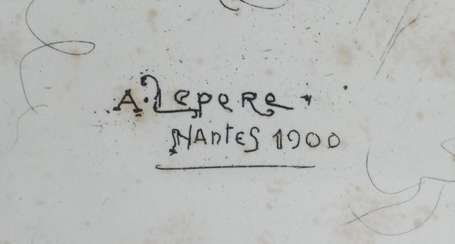 A. Lepere
Nantes 1900